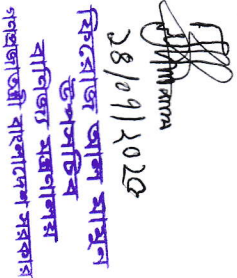 28/09/2020
ফিরোজ আল মামুন
উপসচিব
বাণিজ্য মন্ত্রণালয়
গণপ্রজাতন্ত্রী বাংলাদেশ সরকার